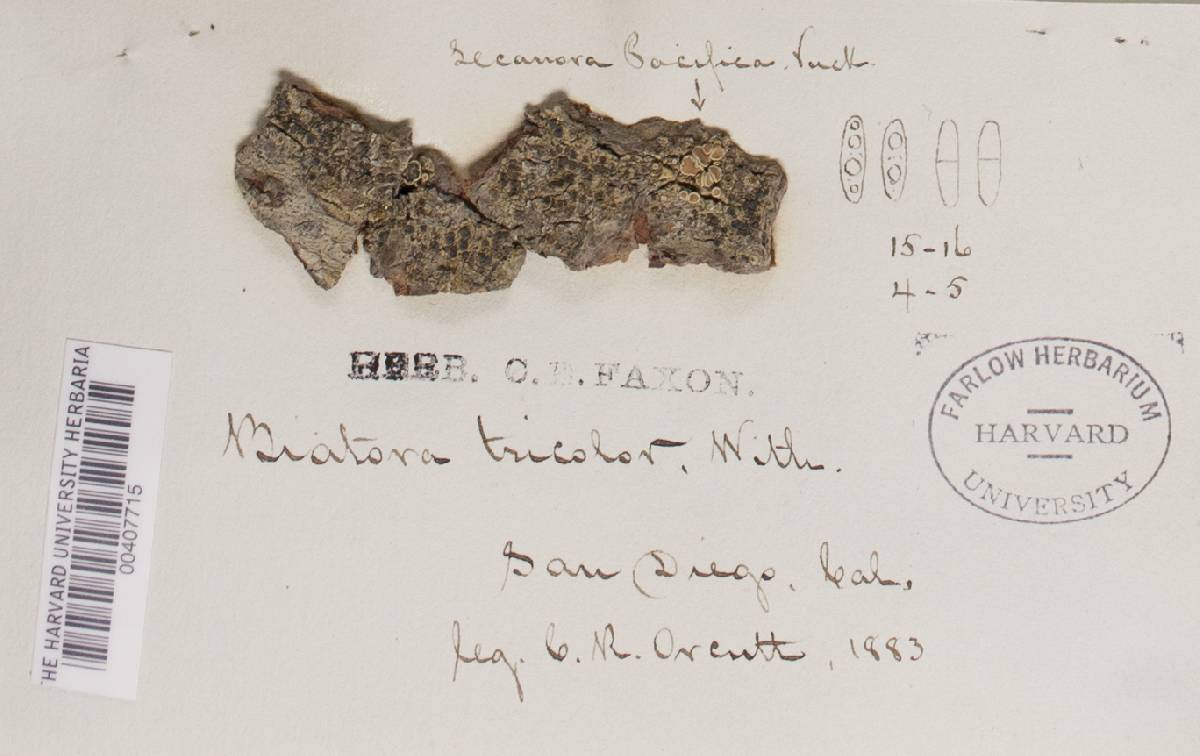 Lecanora Pacifica, Tuck.
15-16
4-5
HERB. C. E. FAXON.
Biatora tricolor, With.
San Diego, Cal,
leg. C. R. Orcutt, 1883
FARLOW HERBARIUM
HARVARD
UNIVERSITY
THE HARVARD UNIVERSITY HERBARIA
00407715